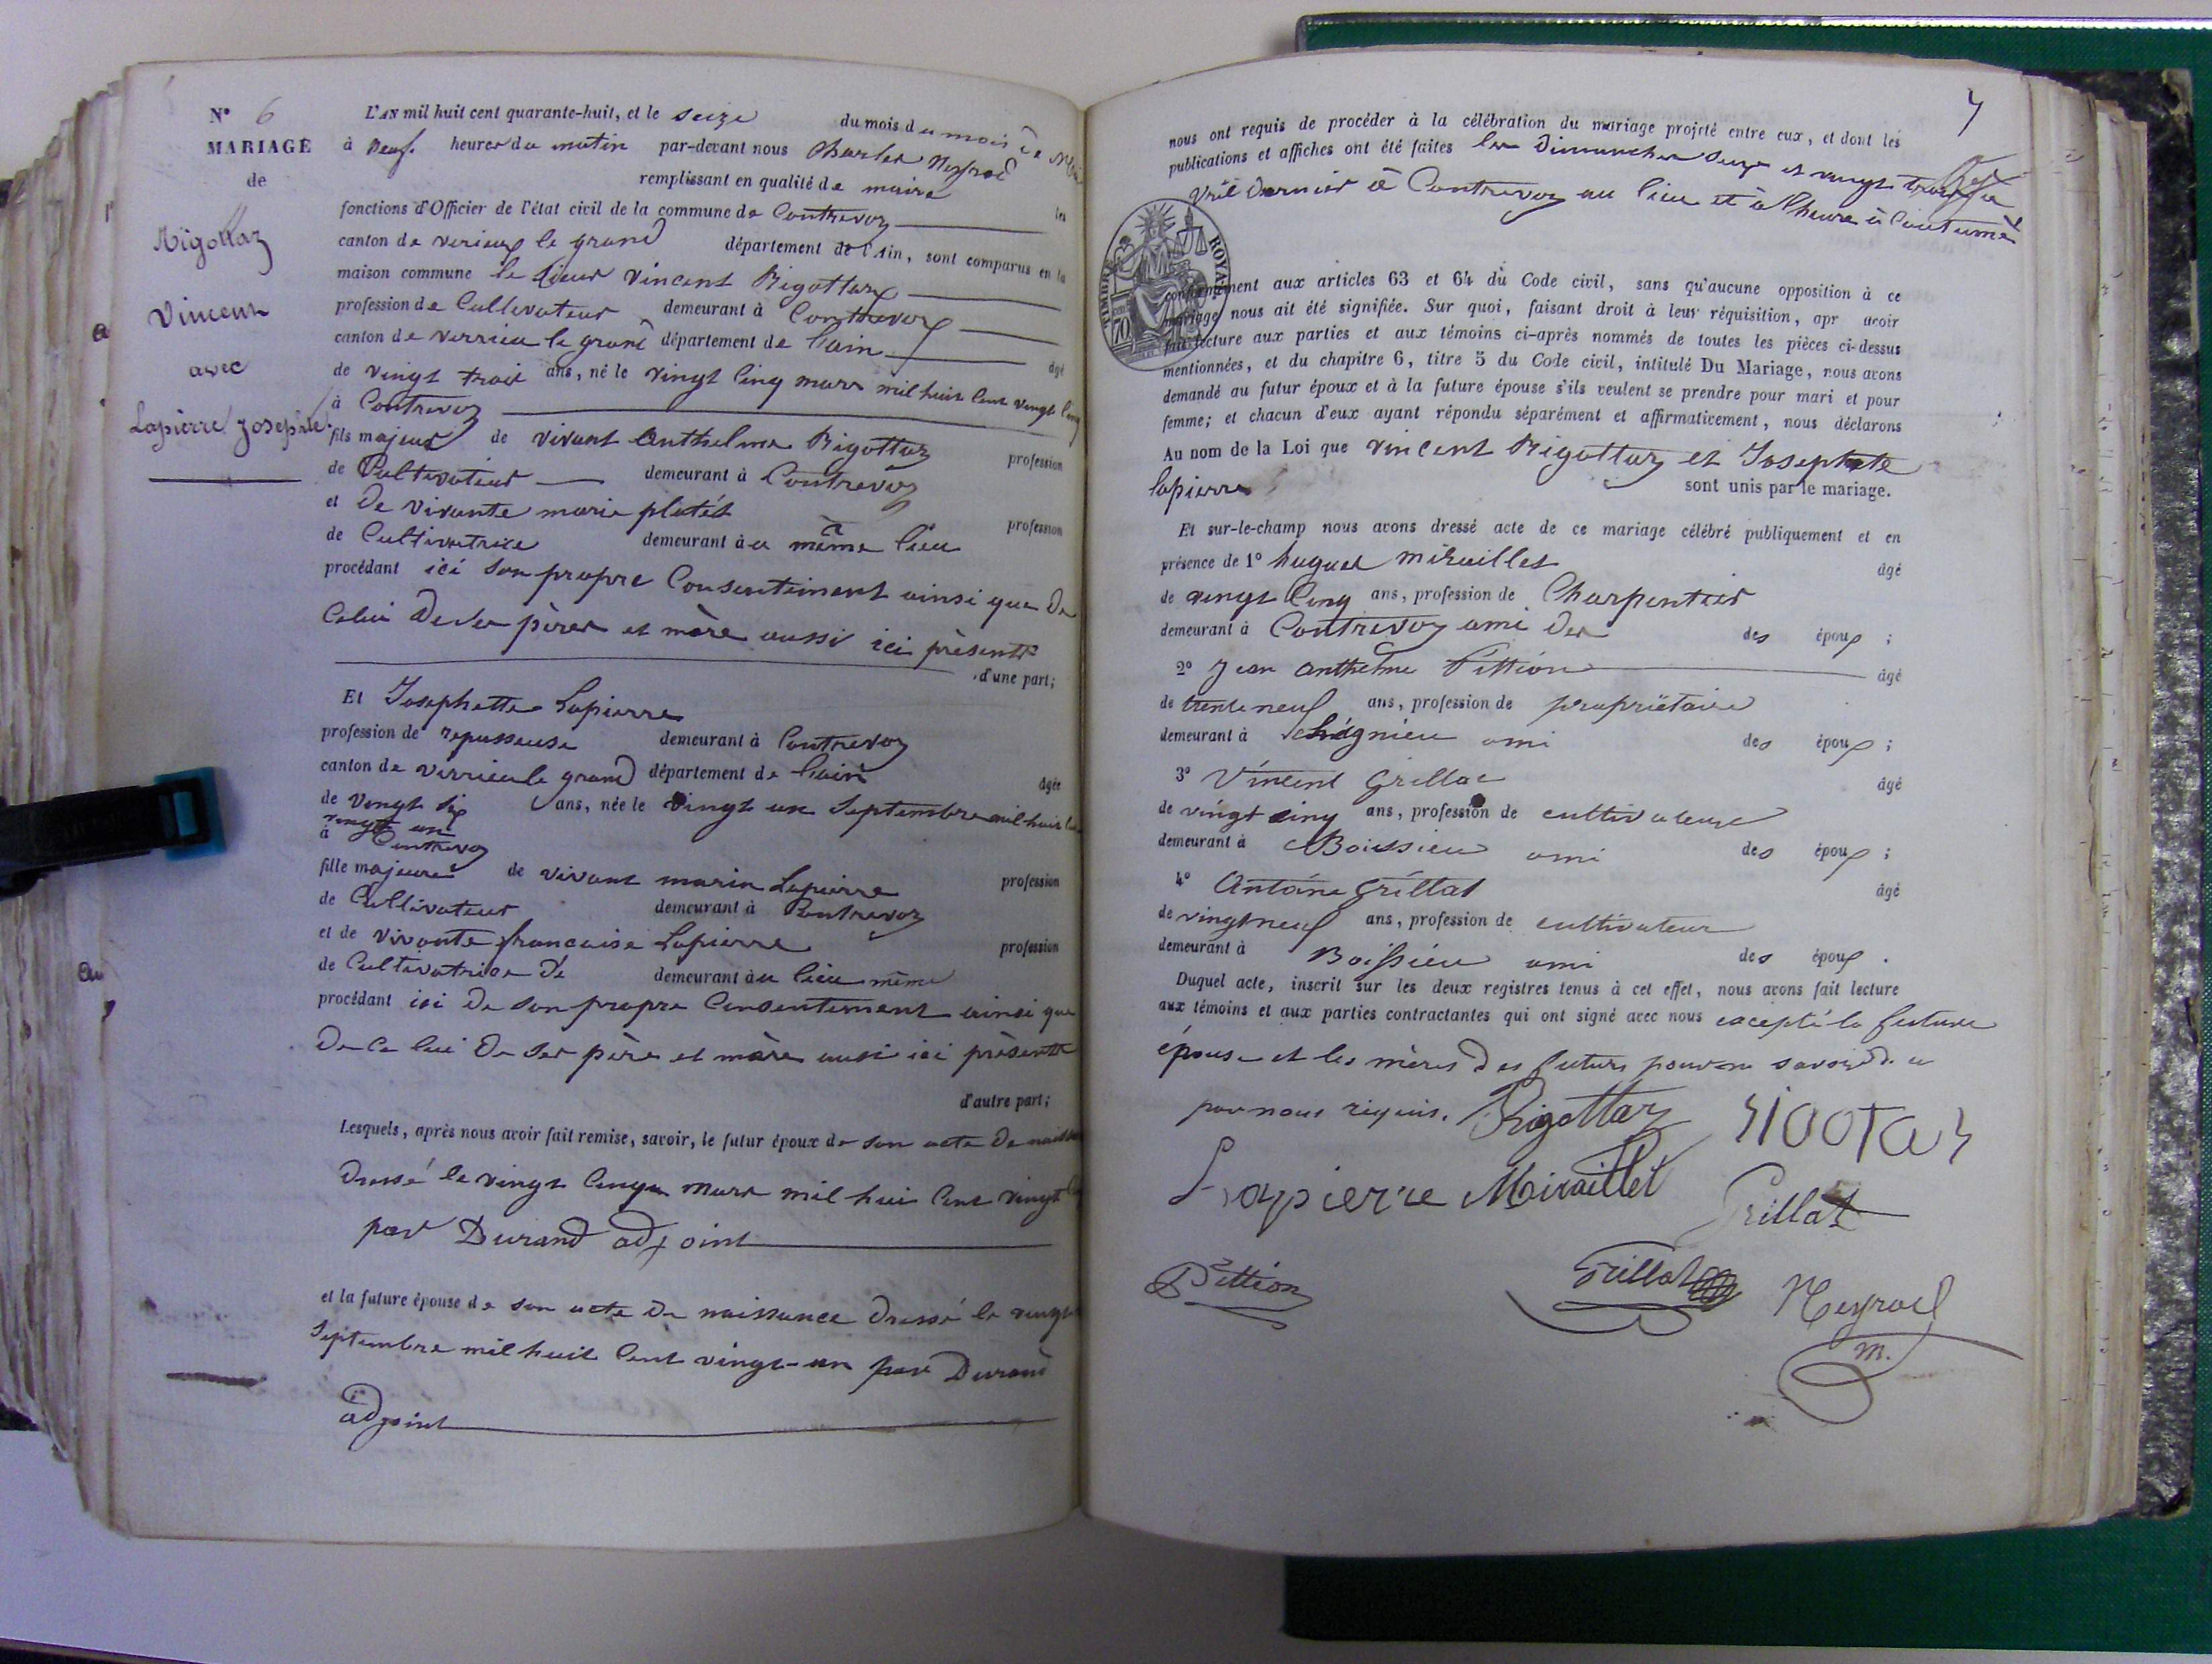 N° 6
MARIAGE
de
Rigottaz
Vincent
avec
Lapierre Josephte
L'AN mil huit cent quarante-huit, et le seize du mois du mois de Mai
à neuf heures du matin par-devant nous Charles Neyroud
remplissant en qualité de maire les
fonctions d'Officier de l'état civil de la commune de Contrevoz
canton de verieux le grand département de l'Ain, sont comparus en la
maison commune le sieur Vincent Rigottaz
profession de Cultivateur demeurant à Conthrevoz
canton de verrieu le grand département de l'ain âgé
de vingt trois ans, né le vingt cinq mars mil huit cent vingt cinq
à Contrevoz
fils majeur de vivant Anthelme Rigottaz profession
de Cultivateur demeurant à Contrevoz
et De vivante marie platét profession
de Cultivatrice demeurant à u même lieu
procédant ici son propre Consentiment ainsi que de
Celui De ses pères et mère aussi ici présents
d'une part;
Et Josephette Lapierre
profession de repasseuse demeurant à Contrevoz
canton de verrieu le grand département de l'ain âgée
de vingt six ans, née le vingt un Septembre mil huit Cent
vingt un
à Contrevoz
fille majeure de vivant marin Lapierre profession
de Cultivateur demeurant à Contrevoz
et de vivante francaise Lapierre profession
de Cultivatrice de demeurant à u lieu même
procédant ici De son propre Consentement ainsi que
De Ce lui De ses père et mère aussi ici présents
d'autre part;
Lesquels, après nous avoir fait remise, savoir, le futur époux de son acte De
Dressé le vingt Cinq mars mil hui Cent vingt
par Durand adjoint
et la future épouse de son acte De naissance Dressé le vingt
Septembre mil huit Cent vingt-un par Durand
adjoint
7
nous ont requis de procéder à la célébration du mariage projeté entre eux, et dont les
publications et affiches ont été faites les Dimanches seize et vingt trois
vril Dernier à Contrevoz au lieu et à l'heure à Coutumé
TIMBRE ROYAL
70
conformément aux articles 63 et 64 du Code civil, sans qu'aucune opposition à ce
mariage nous ait été signifiée. Sur quoi, faisant droit à leur réquisition, apr avoir
fait lecture aux parties et aux témoins ci-après nommés de toutes les pièces ci-dessus
mentionnées, et du chapitre 6, titre 5 du Code civil, intitulé Du Mariage, nous avons
demandé au futur époux et à la future épouse s'ils veulent se prendre pour mari et pour
femme; et chacun d'eux ayant répondu séparément et affirmativement, nous déclarons
Au nom de la Loi que vincent Rigottaz et Josephte
lapierre sont unis par le mariage.
Et sur-le-champ nous avons dressé acte de ce mariage célébré publiquement et en
présence de 1° hugues miraillet âgé
de vingt Cinq ans, profession de Charpentier
demeurant à Contrevoz ami des des époux ;
2° Jean anthelme Pittion âgé
de trente neuf ans, profession de propriétaire
demeurant à Chégnieu ami des époux ;
3° Vincent Grillat âgé
de vingt cinq ans, profession de cultivateur
demeurant à Boissieu ami des époux ;
4° Antoine Grillat âgé
de vingt neuf ans, profession de cultivateur
demeurant à Boissieu ami des époux .
Duquel acte, inscrit sur les deux registres tenus à cet effet, nous avons fait lecture
aux témoins et aux parties contractantes qui ont signé avec nous excepté la future
épouse et les mères des futurs pour ne savoir de ce
par nous requis. Rigottaz
Lapierre Miraillet Grillat
Pittion Grillat Neyroud
m.